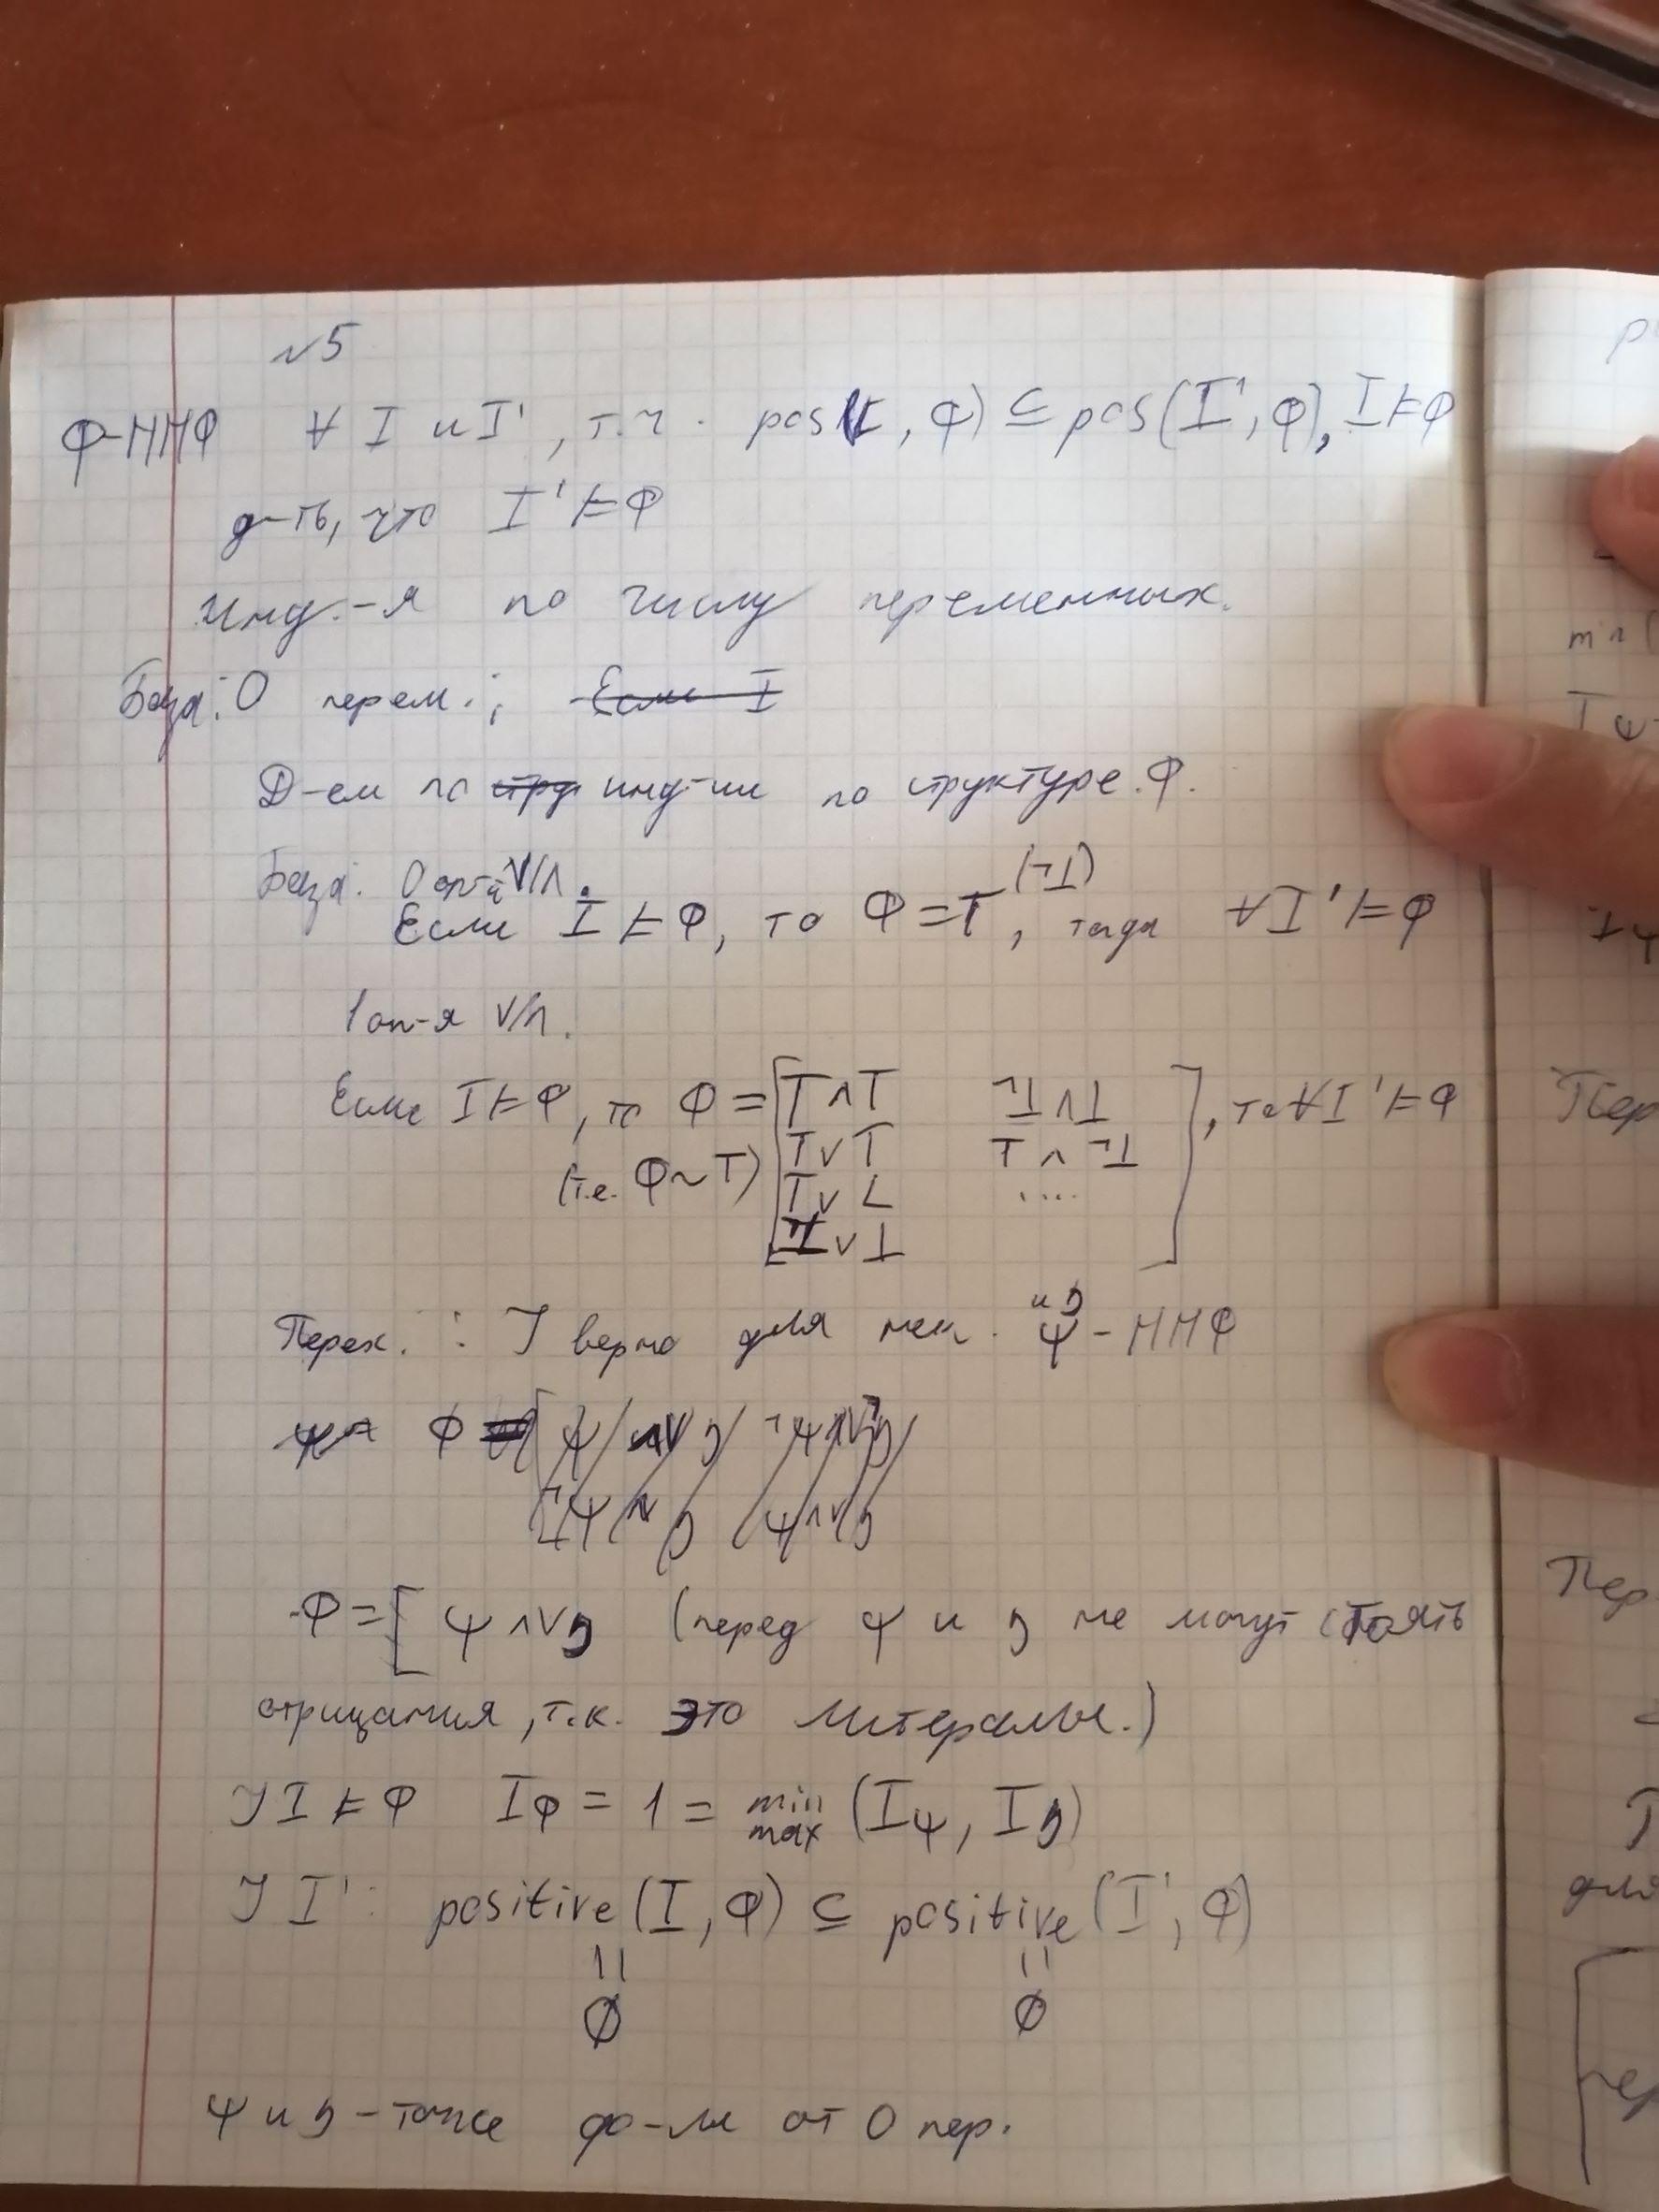 №5
Ф-ННФ ∀ I и I', т.ч. pos(I, Ф) ⊆ pos(I', Ф), I ⊨ Ф
д-ть, что I' ⊨ Ф
Инд.-я по числу переменных.
База: 0 перем.; Если I
Д-ем по стру инд-ии по структуре Ф.
База: 0 оп-й ∨/∧.
Если I ⊨ Ф, то Ф = T (¬⊥), тогда ∀ I' ⊨ Ф
1 оп-я ∨/∧.
Если I ⊨ Ф, то Ф = [ T ∧ T ¬⊥ ∧ ⊥ ], то ∀ I' ⊨ Ф
(т.е. Ф ~ T) T ∨ T T ∧ ¬⊥
T ∨ ⊥ ....
∨ ⊥
Перех.: J верно для нек. ψ и η - ННФ
Ф = [ ψ ∧∨ η ¬ψ ∧∨ η
¬ψ ∧∨ η ψ ∧∨ η
Ф = [ ψ ∧∨ η (перед ψ и η не могут стоять
отрицания, т.к. это литералы.)
J I ⊨ Ф IФ = 1 = min max (Iψ, Iη)
J I': positive(I, Ф) ⊆ positive(I', Ф)
|| ||
∅ ∅
ψ и η - тоже ф-лы от 0 пер.